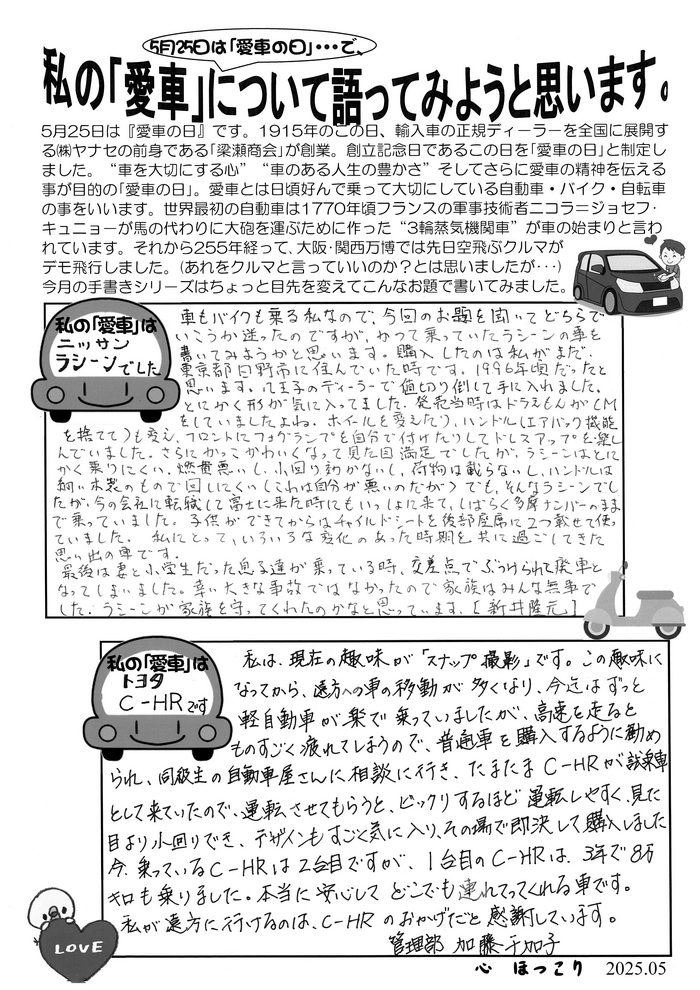 5月25日は「愛車の日」・・・で、
私の「愛車」について語ってみようと思います。
5月25日は『愛車の日』です。1915年のこの日、輸入車の正規ディーラーを全国に展開す
る㈱ヤナセの前身である「梁瀬商会」が創業。創立記念日であるこの日を「愛車の日」と制定し
ました。“車を大切にする心”“車のある人生の豊かさ”そしてさらに愛車の精神を伝える
事が目的の「愛車の日」。愛車とは日頃好んで乗って大切にしている自動車・バイク・自転車
の事をいいます。世界最初の自動車は1770年頃フランスの軍事技術者ニコラ＝ジョセフ・
キュニョーが馬の代わりに大砲を運ぶために作った“3輪蒸気機関車”が車の始まりと言わ
れています。それから255年経って、大阪・関西万博では先日空飛ぶクルマが
デモ飛行しました。（あれをクルマと言っていいのか？とは思いましたが・・・）
今月の手書きシリーズはちょっと目先を変えてこんなお題で書いてみました。
私の「愛車」は
ニッサン
ラシーンでした
車もバイクも乗る私なので、今回のお題を聞いてどちらで
いこうか迷ったのですが、かつて乗っていたラシーンの事を
書いてみようかと思います。購入したのは私がまだ、
東京都日野市に住んでいた時です。1996年頃だったと
思います。八王子のディーラーで値切り倒して手に入れました。
とにかく形が気に入ってました。発売当時はドラえもんがCM
をしていましたよね。ホイールを変えたり、ハンドル（エアバック機能
を捨てて）も変え、フロントにフォグランプを自分で付けたりしてドレスアップを楽し
んでいました。さらにかっこかわいくなって見た目満足でしたが、ラシーンはとに
かく乗りにくい。燃費悪いし、小回り効かないし、荷物は載らないし、ハンドルは
細い木製のもので回しにくい（これは自分が悪いのだが）でも、そんなラシーンでし
たが、今の会社に転職して富士に来た時にもいっしょに来て、しばらく多摩ナンバーのまま
で乗っていました。子供ができてからはチャイルドシートを後部座席に2つ載せて使っ
ていました。私にとって、いろいろな変化のあった時期を共に過ごしてきた
思い出の車です。
最後は妻と小学生だった息子達が乗っている時、交差点でぶつけられて廃車と
なってしまいました。幸い大きな事故ではなかったので家族はみんな無事で
した。ラシーンが家族を守ってくれたのかなと思っています。[新井隆元]
私の「愛車」は
トヨタ
C-HRです
私は、現在の趣味が「スナップ撮影」です。この趣味に
なってから、遠方への車の移動が多くなり、今迄はずっと
軽自動車が楽で乗っていましたが、高速を走ると
ものすごく疲れてしまうので、普通車を購入するように勧め
られ、同級生の自動車屋さんに相談に行き、たまたまC-HRが試乗車
として来ていたので、運転させてもらうと、ビックリするほど運転しやすく、見た
目より小回りでき、デザインもすごく気に入り、その場で即決して購入しました
今、乗っているC-HRは2台目ですが、1台目のC-HRは、3年で8万
キロも乗りました。本当に安心してどこでも連れてってくれる車です。
私が遠方に行けるのは、C-HRのおかげだと感謝しています。
管理部 加藤千加子
LOVE
心 ほっこり 2025.05